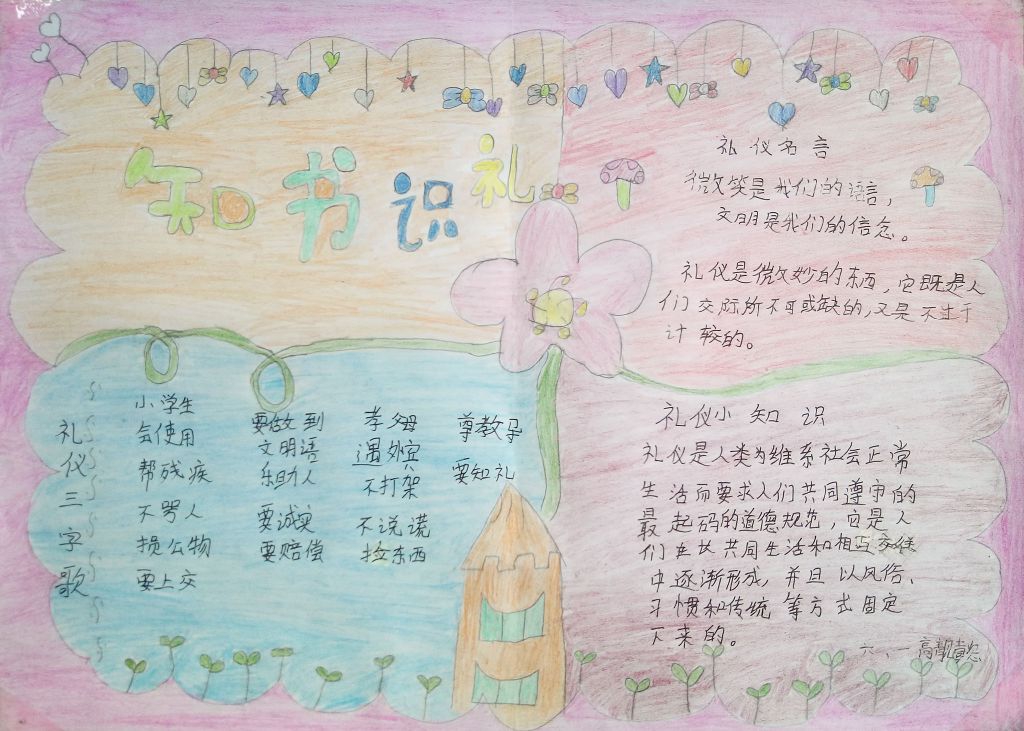 知书识礼
礼仪名言
微笑是我们的语言，
文明是我们的信念。
礼仪是微妙的东西，它既是人
们交际所不可或缺的，又是不过于
计较的。
礼仪三字歌
小学生 要做到 孝父母 尊教导
会使用 文明语 遇外宾 要知礼
帮残疾 乐助人 不打架
不骂人 要诚实 不说谎
损公物 要赔偿 捡东西
要上交
礼仪小知识
礼仪是人类为维系社会正常
生活而要求人们共同遵守的
最起码的道德规范，它是人
们在共同生活和相互交往
中逐渐形成，并且以风俗、
习惯和传统等方式固定
下来的。
六、一